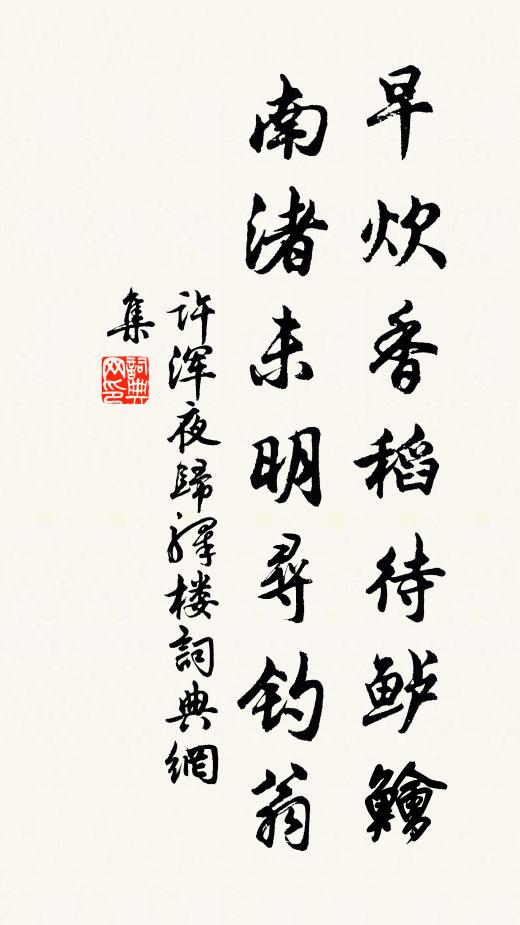 早炊香稻待鲈鱠
南渚未明尋钓翁
许浑夜歸驛楼詞典網
集
詞典
网印